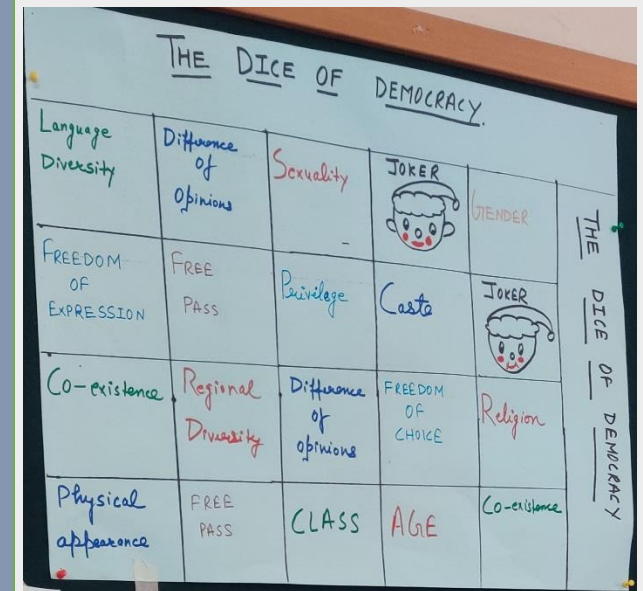 THE DICE OF DEMOCRACY.
Language
Diversity
Difference
of
Opinions
Sexuality
JOKER
GENDER
FREEDOM
OF
EXPRESSION
FREE
PASS
Privilege
Caste
JOKER
Co-existence
Regional
Diversity
Difference
of
opinions
FREEDOM
OF
CHOICE
Religion
Physical
appearance
FREE
PASS
CLASS
AGE
Co-existence
THE DICE OF DEMOCRACY